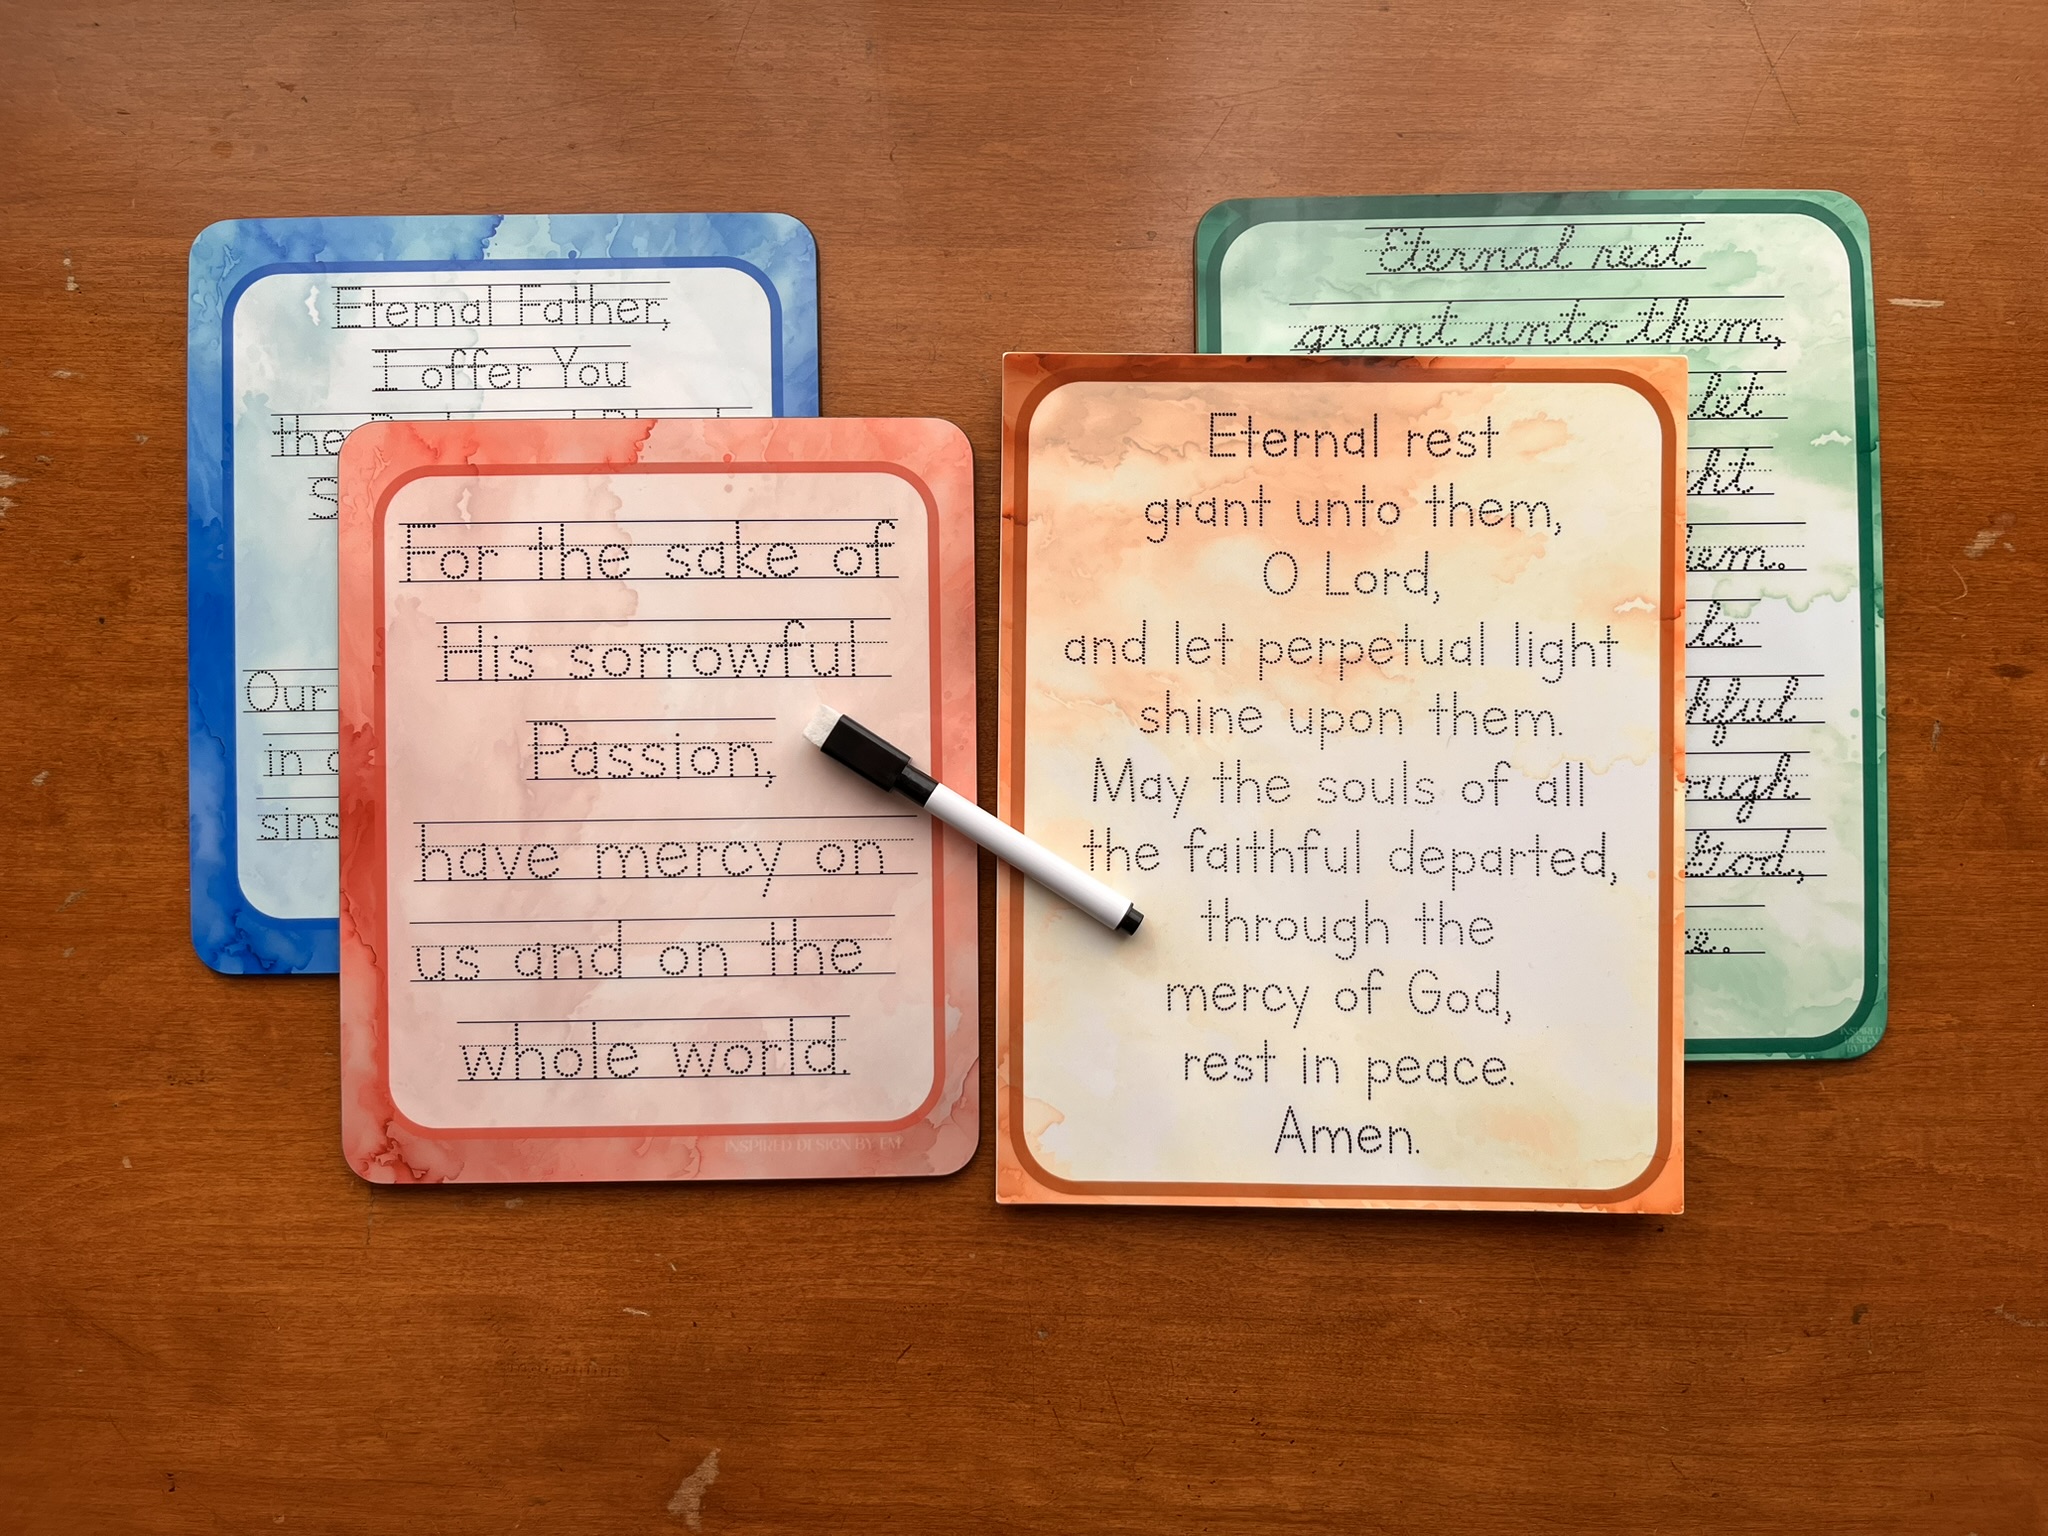 Eternal Father,
I offer You
the
S
Our
in
sins
For the sake of
His sorrowful
Passion,
have mercy on
us and on the
whole world.
INSPIRED DESIGN BY EM
Eternal rest
grant unto them,
O Lord,
and let perpetual light
shine upon them.
May the souls of all
the faithful departed,
through the
mercy of God,
rest in peace.
Amen.
Eternal rest
grant unto them,
let
God,
INSPIRED
DESIGN